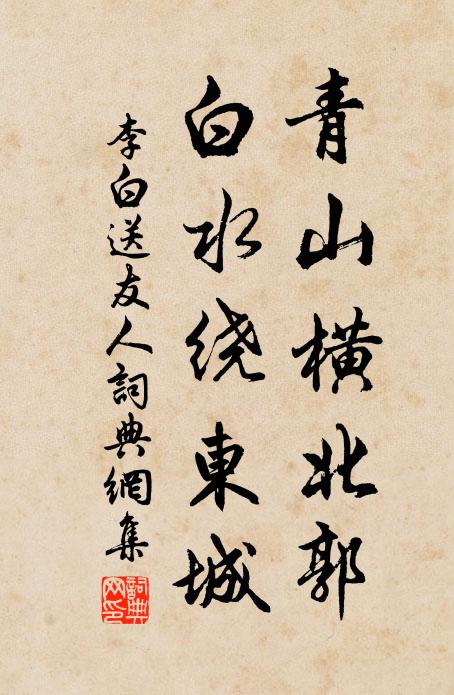 青山橫北郭
白水绕東城
李白送友人詞典網集
詞典网印